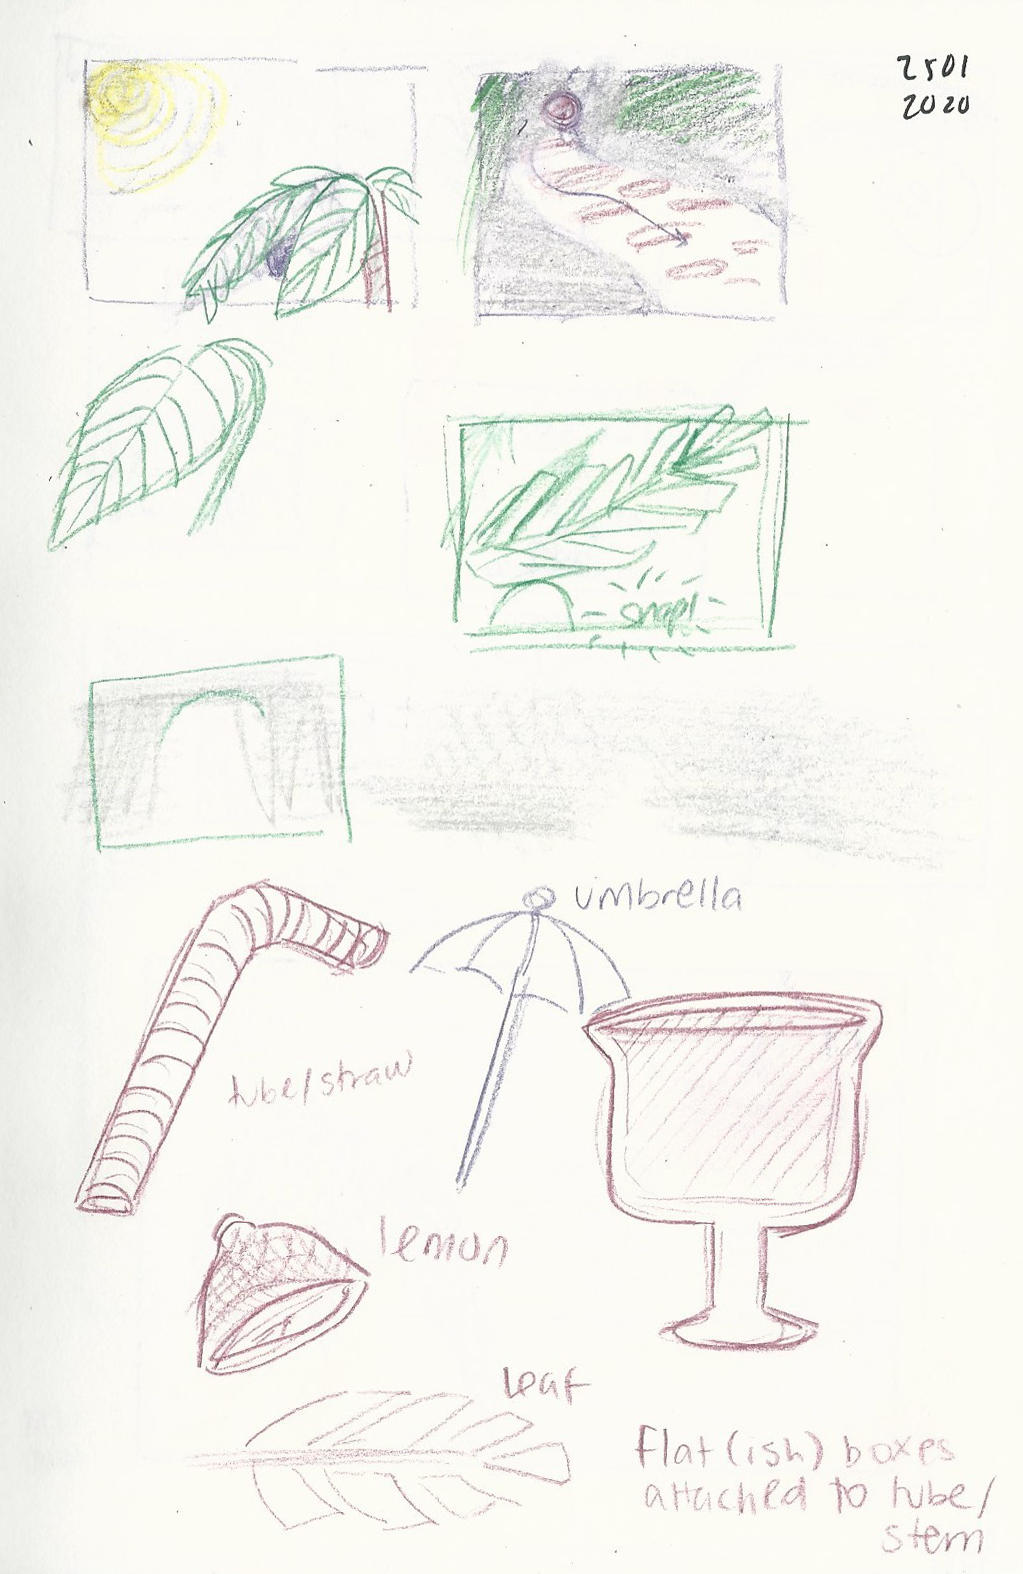 2501
2020
snap!
umbrella
tube/straw
lemon
leaf
flat(ish) boxes
attached to tube/
stem